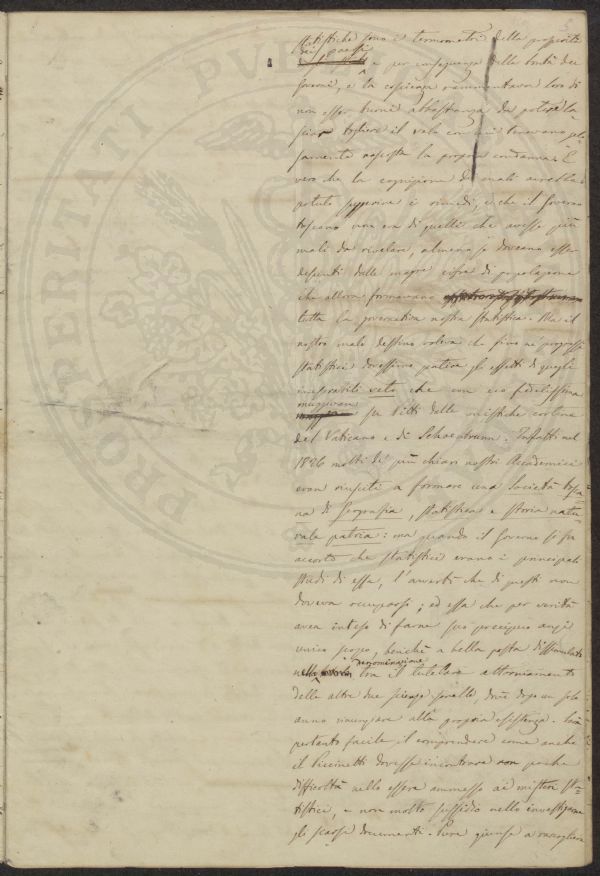 statistiche sono i termometri della prosperità
dei paesi
e per conseguenza della bontà dei
Governi, e la coscienza rammentava loro di
non esser buoni abbastanza da potere la
sciar togliere il velo con cui tenevano gelo
samente nascosta la propria condanna. È
vero che la cognizione de' mali avrebbe
potuto suggerire i rimedi, e che il Governo
toscano non era di quelli che avesse più
mali da rivelare, almeno se doveano esser
desunti dalle magre cifre di popolazione
che allora formavano
tutta la governativa nostra statistica. Ma il
nostro malo destino voleva che fino ne' progressi
statistici dovessimo patire gli effetti di quegli
veto che con eco fedelissima
muovevan
su i fili delle cortine
del Vaticano e di Schoenbrunn. Infatti nel
1826 molti de' più chiari nostri Accademici
eran riusciti a formare una Società tosca
na di Geografia, statistica e storia natu
rale patria: ma quando il Governo si fu
accorto che statistici erano i principali
studi di essa, l'avvertì che di questi non
doveva occuparsi; ed essa che per verità
avea inteso di farne suo precipuo anzi
unico scopo, benchè a bella posta dissimulato
denominazione
nella tra il tutelare attorniamento
delle altre due scienze sorelle, dovè dopo un solo
anno rinunziare alla propria esistenza. Sarà
pertanto facile il comprendere come anche
il Piccinetti dovesse incontrare non poche
difficoltà nello essere ammesso ai misteri sta
tistici, e non molto sussidio nello investigarne
gli scarsi documenti. Pure giunse a raccogliere
PROVERITATI PVB